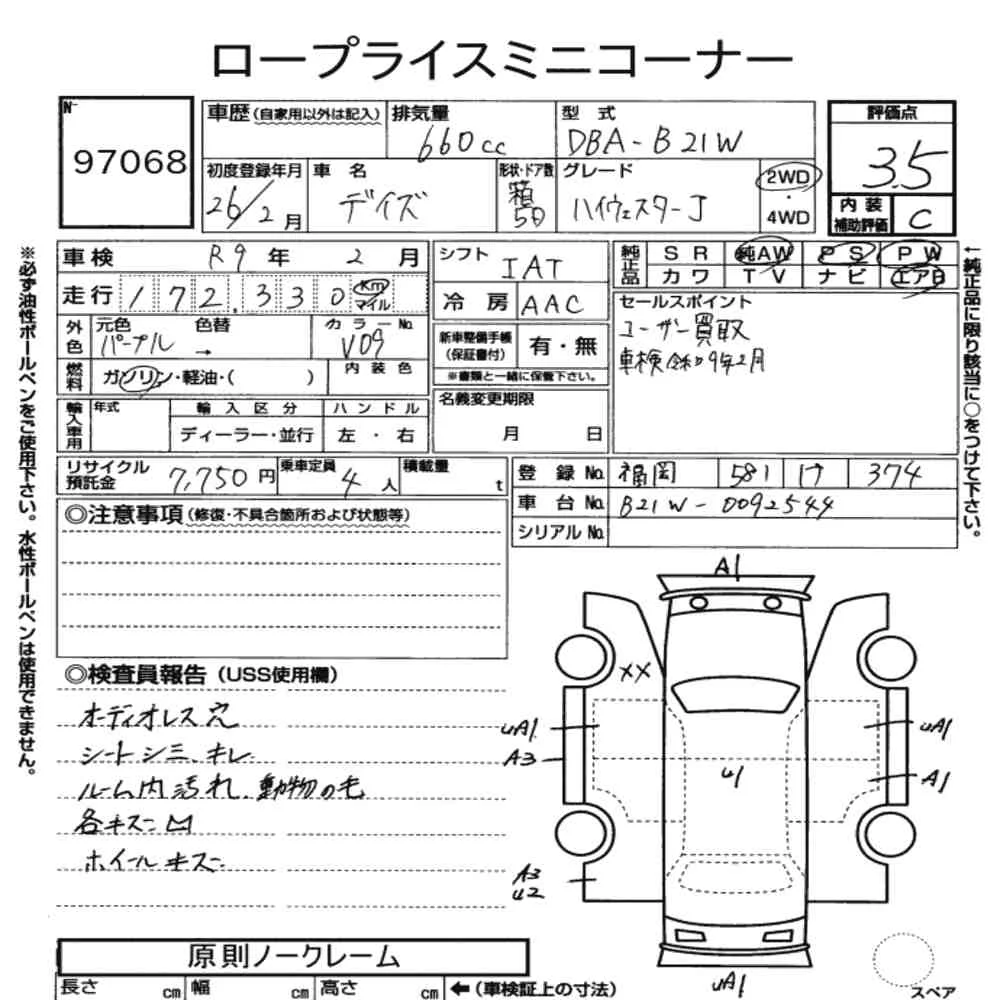 ロープライスミニコーナー
№ 97068
車歴(自家用以外は記入) 排気量 660cc 型式 DBA-B21W 評価点 3.5
初度登録年月 26/2月 車名 デイズ 形状・ドア数 箱・5D グレード ハイウェスターJ 2WD・4WD
内装補助評価 C
車検 R9年 2月
走行 172,330 Km マイル
外色 元色 パープル 色替 → カラーNo. V09
燃料 ガソリン・軽油・( ) 内装色
輸入車用 年式 輸入区分 ディーラー・並行 ハンドル 左・右
シフト IAT
冷房 AAC
新車整備手帳(保証書付) 有・無
※書類と一緒に保管下さい。
名義変更期限 月 日
純正品 SR 純AW PS PW
カワ TV ナビ エアB
セールスポイント
ユーザー買取
車検令和9年2月
リサイクル預託金 7,750円 乗車定員 4人 積載量 t
登録No. 福岡 581 け 374
車台No. B21W-0092544
シリアルNo.
◎注意事項(修復・不具合箇所および状態等)
◎検査員報告(USS使用欄)
オーディオレス穴
シートシミ、キレ
ルーム内汚れ、動物の毛
各キズ凹
ホイールキズ
A1
XX
uA1
A3
uA1
A1
u1
A3
u2
uA1
スペア
原則ノークレーム
長さ cm 幅 cm 高さ cm ←(車検証上の寸法)
※必ず油性ボールペンをご使用下さい。水性ボールペンは使用できません。
←純正品に限り該当に○をつけて下さい。